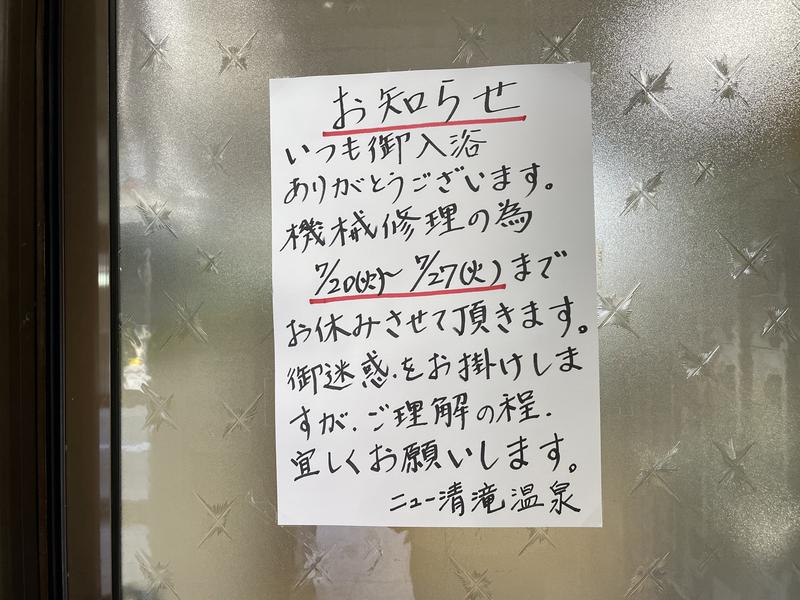 お知らせ
いつも御入浴
ありがとうございます。
機械修理の為
7/20(火)～7/27(火)まで
お休みさせて頂きます。
御迷惑をお掛けしま
すが、ご理解の程、
宜しくお願いします。
ニュー清滝温泉